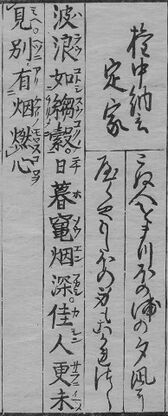 権中納言
定家
こぬ人をまつほの浦の夕凪に
やくやもしほの身もこかれつゝ
波浪如縐縠日暮竈烟深。佳人更未
見別有烟燃心